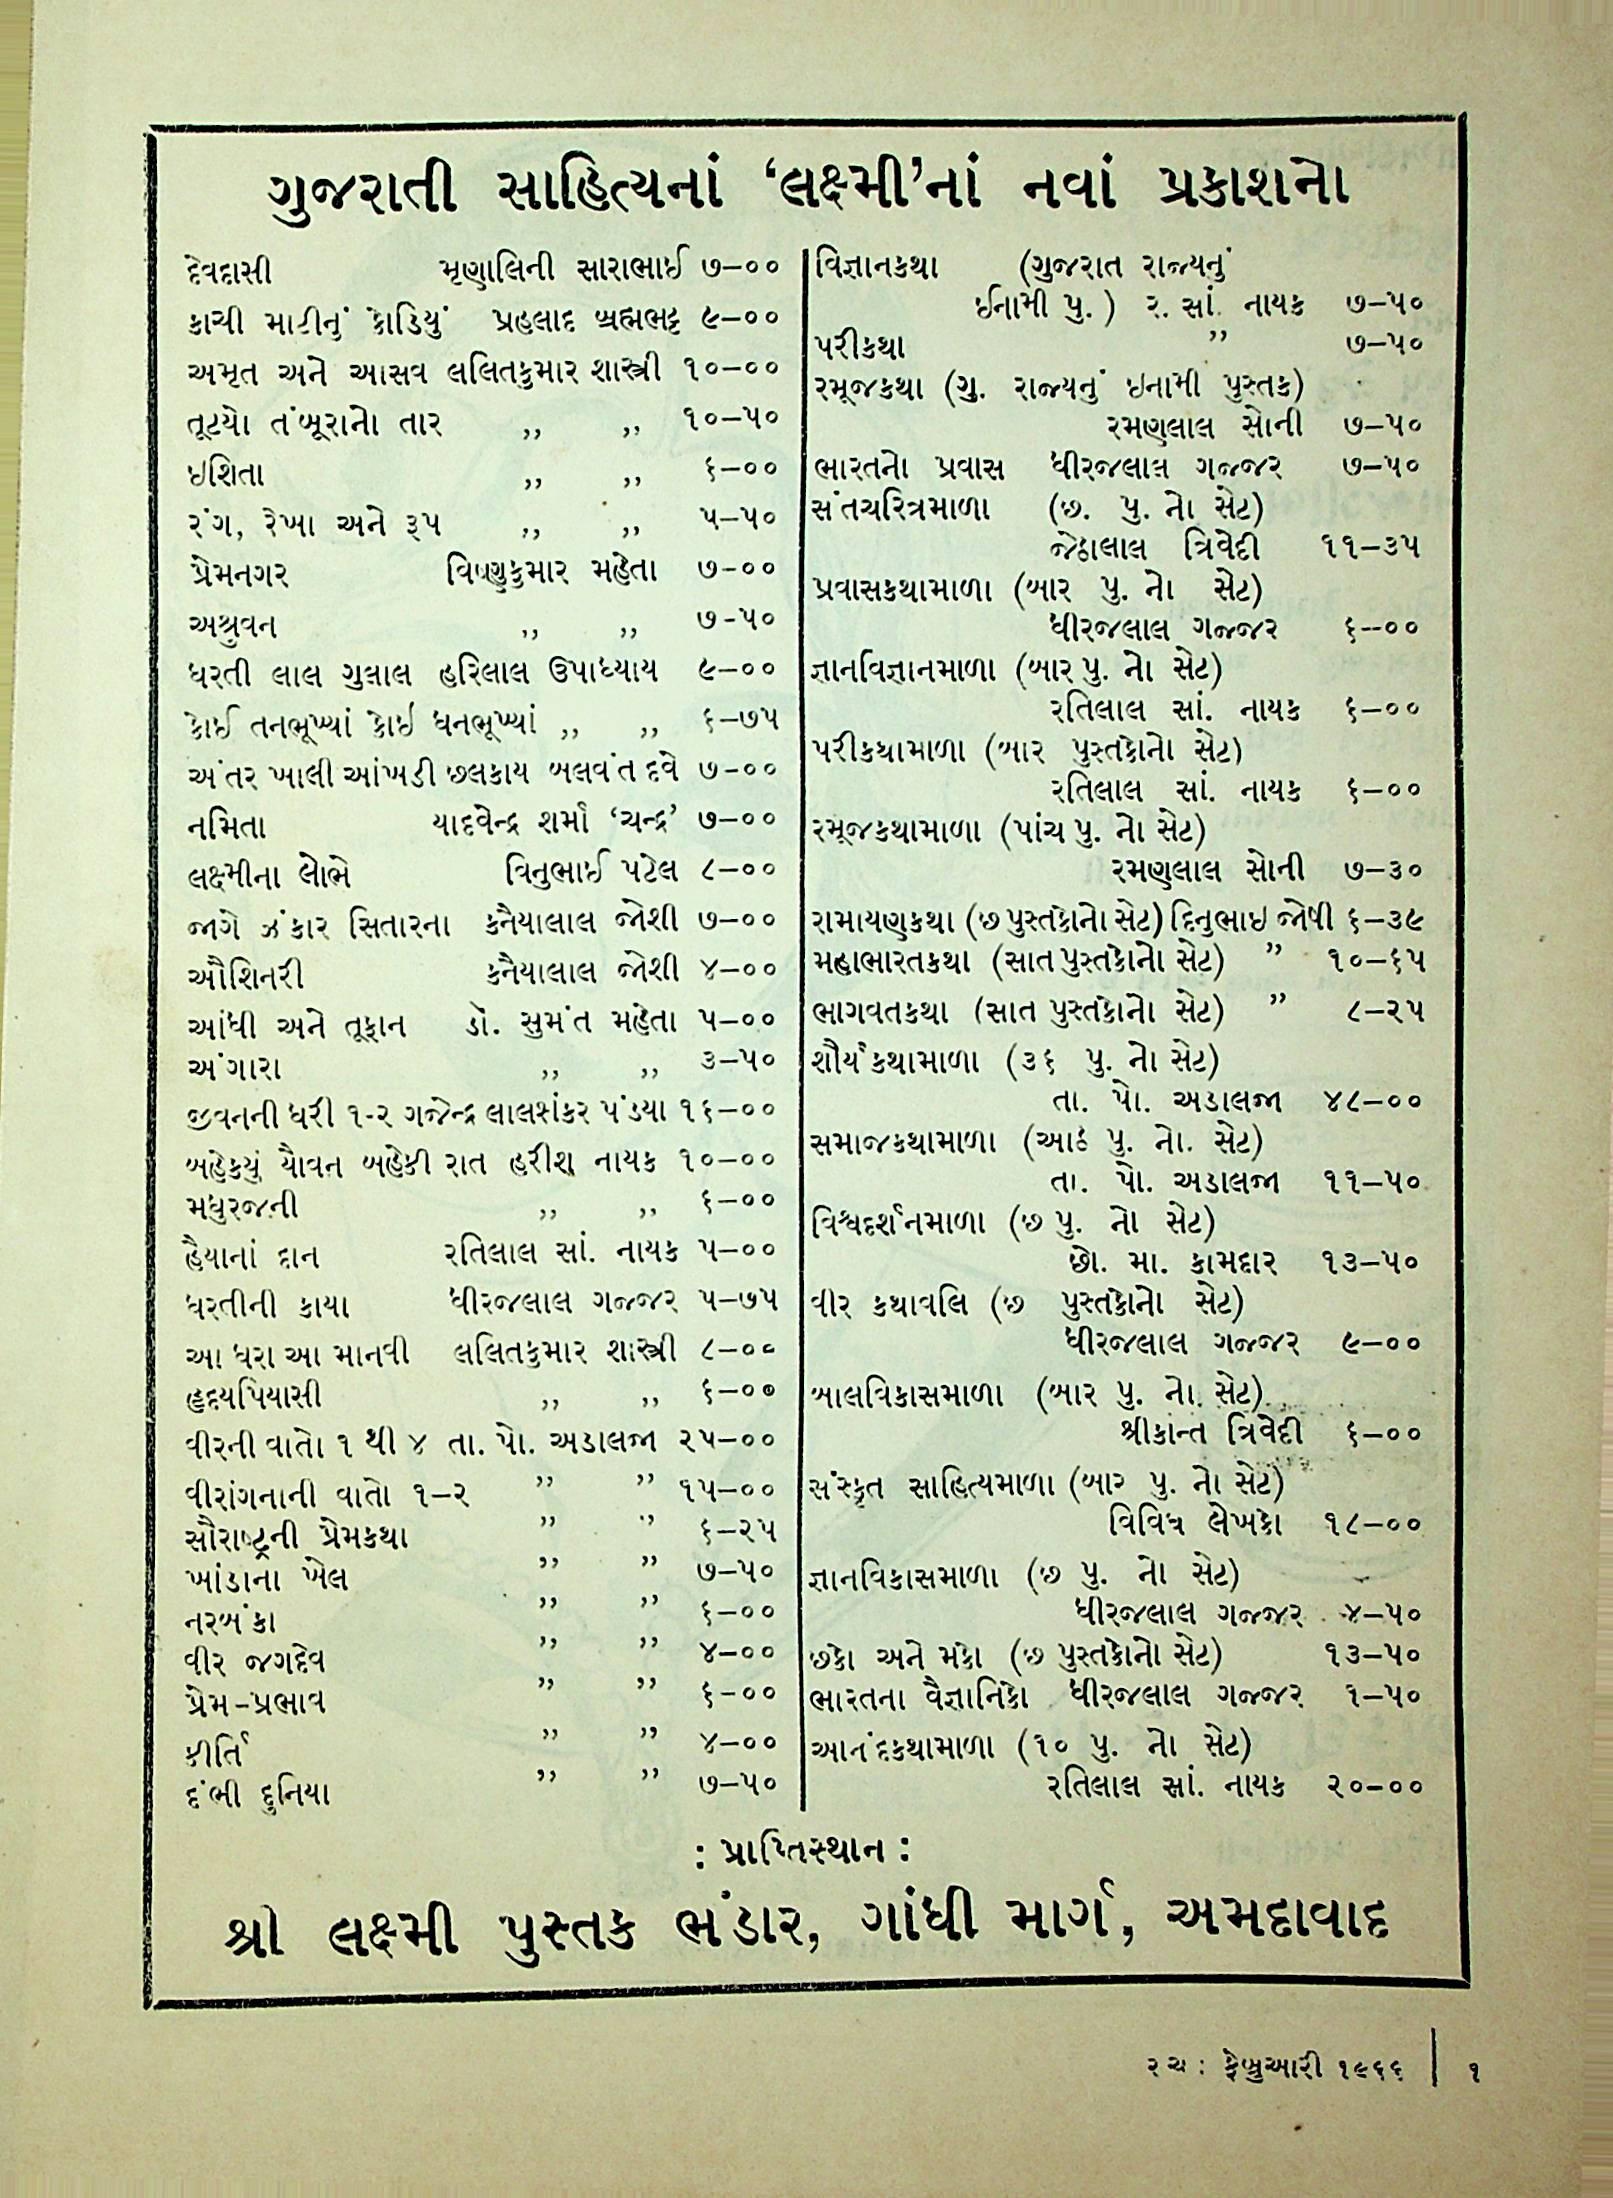 ગુજરાતી સાહિત્યનાં ‘લક્ષ્મી’નાં નવાં પ્રકાશનો
દેવદાસી મૃણાલિની સારાભાઈ ૭–૦૦
કાચી માટીનું કોડિયું પ્રહલાદ બ્રહ્મભટ્ટ ૯–૦૦
અમૃત અને આસવ લલિતકુમાર શાસ્ત્રી ૧૦–૦૦
તૂટયો તંબૂરાનો તાર ,, ,, ૧૦–૫૦
ઇશિતા ,, ,, ૬–૦૦
રંગ, રેખા અને રૂપ ,, ,, ૫–૫૦
પ્રેમનગર વિષ્ણુકુમાર મહેતા ૭–૦૦
અશ્રુવન ,, ,, ૭-૫૦
ધરતી લાલ ગુલાલ હરિલાલ ઉપાધ્યાય ૯–૦૦
કોઈ તનભૂખ્યાં કોઈ ધનભૂખ્યાં ,, ,, ૬–૭૫
અંતર ખાલી આંખડી છલકાય બલવંત દવે ૭–૦૦
નમિતા યાદવેન્દ્ર શર્મા ‘ચન્દ્ર’ ૭–૦૦
લક્ષ્મીના લોભે વિનુભાઈ પટેલ ૮–૦૦
જાગે ઝંકાર સિતારના કનૈયાલાલ જોશી ૭–૦૦
ઔશિનરી કનૈયાલાલ જોશી ૪–૦૦
આંધી અને તૂફાન ડૉ. સુમંત મહેતા ૫–૦૦
અંગારા ,, ,, ૩–૫૦
જીવનની ધરી ૧-૨ ગજેન્દ્ર લાલશંકર પંડયા ૧૬–૦૦
બહેક્યું યૌવન બહેકી રાત હરીશ નાયક ૧૦–૦૦
મધુરજની ,, ,, ૬–૦૦
હૈયાનાં દાન રતિલાલ સાં. નાયક ૫–૦૦
ધરતીની કાયા ધીરજલાલ ગજ્જર ૫–૭૫
આ ધરા આ માનવી લલિતકુમાર શાસ્ત્રી ૮–૦૦
હૃદયપિયાસી ,, ,, ૬–૦૦
વીરની વાતો ૧ થી ૪ તા. પો. અડાલજા ૨૫–૦૦
વીરાંગનાની વાતો ૧–૨ ” ” ૧૫–૦૦
સૌરાષ્ટ્રની પ્રેમકથા ” ” ૬–૨૫
ખાંડાના ખેલ ” ” ૭–૫૦
નરબંકા ” ” ૬–૦૦
વીર જગદેવ ” ” ૪–૦૦
પ્રેમ-પ્રભાવ ” ” ૬–૦૦
કીર્તિ ” ” ૪–૦૦
દંભી દુનિયા ” ” ૭–૫૦
વિજ્ઞાનકથા (ગુજરાત રાજ્યનું
ઈનામી પુ.) ર. સાં. નાયક ૭–૫૦
પરીકથા ” ૭–૫૦
રમૂજકથા (ગુ. રાજ્યનું ઇનામી પુસ્તક)
રમણલાલ સોની ૭–૫૦
ભારતનો પ્રવાસ ધીરજલાલ ગજ્જર ૭–૫૦
સંતચરિત્રમાળા (છ. પુ. નો સેટ)
જેઠાલાલ ત્રિવેદી ૧૧–૩૫
પ્રવાસકથામાળા (બાર પુ. નો સેટ)
ધીરજલાલ ગજ્જર ૬–૦૦
જ્ઞાનવિજ્ઞાનમાળા (બાર પુ. નો સેટ)
રતિલાલ સાં. નાયક ૬–૦૦
પરીકથામાળા (બાર પુસ્તકોનો સેટ)
રતિલાલ સાં. નાયક ૬–૦૦
રમૂજકથામાળા (પાંચ પુ. નો સેટ)
રમણલાલ સોની ૭–૩૦
રામાયણકથા (છ પુસ્તકોનો સેટ) દિનુભાઇ જોષી ૬–૩૯
મહાભારતકથા (સાત પુસ્તકોનો સેટ) ” ૧૦–૬૫
ભાગવતકથા (સાત પુસ્તકોનો સેટ) ” ૮–૨૫
શૌર્યકથામાળા (૩૬ પુ. નો સેટ)
તા. પો. અડાલજા ૪૮–૦૦
સમાજકથામાળા (આઠ પુ. નો. સેટ)
તા. પો. અડાલજા ૧૧–૫૦
વિશ્વદર્શનમાળા (છ પુ. નો સેટ)
છો. મા. કામદાર ૧૩–૫૦
વીર કથાવલિ (છ પુસ્તકોનો સેટ)
ધીરજલાલ ગજ્જર ૯–૦૦
બાલવિકાસમાળા (બાર પુ. નો. સેટ)
શ્રીકાન્ત ત્રિવેદી ૬–૦૦
સંસ્કૃત સાહિત્યમાળા (બાર પુ. નો સેટ)
વિવિધ લેખકો ૧૮–૦૦
જ્ઞાનવિકાસમાળા (છ પુ. નો સેટ)
ધીરજલાલ ગજ્જર ૪–૫૦
છકો અને મકો (છ પુસ્તકોનો સેટ) ૧૩–૫૦
ભારતના વૈજ્ઞાનિકો ધીરજલાલ ગજ્જર ૧–૫૦
આનંદકથામાળા (૧૦ પુ. નો સેટ)
રતિલાલ સાં. નાયક ૨૦–૦૦
: પ્રાપ્તિસ્થાન :
શ્રી લક્ષ્મી પુસ્તક ભંડાર, ગાંધી માર્ગ, અમદાવાદ
રચ : ફેબ્રુઆરી ૧૯૬૬ | ૧